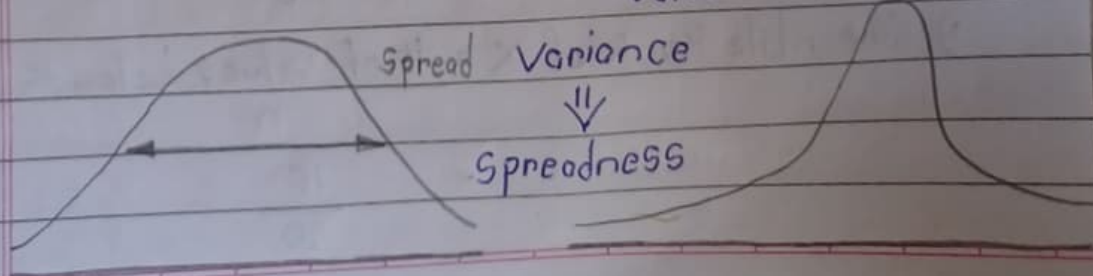 Spread Variance
⇓
Spreadness